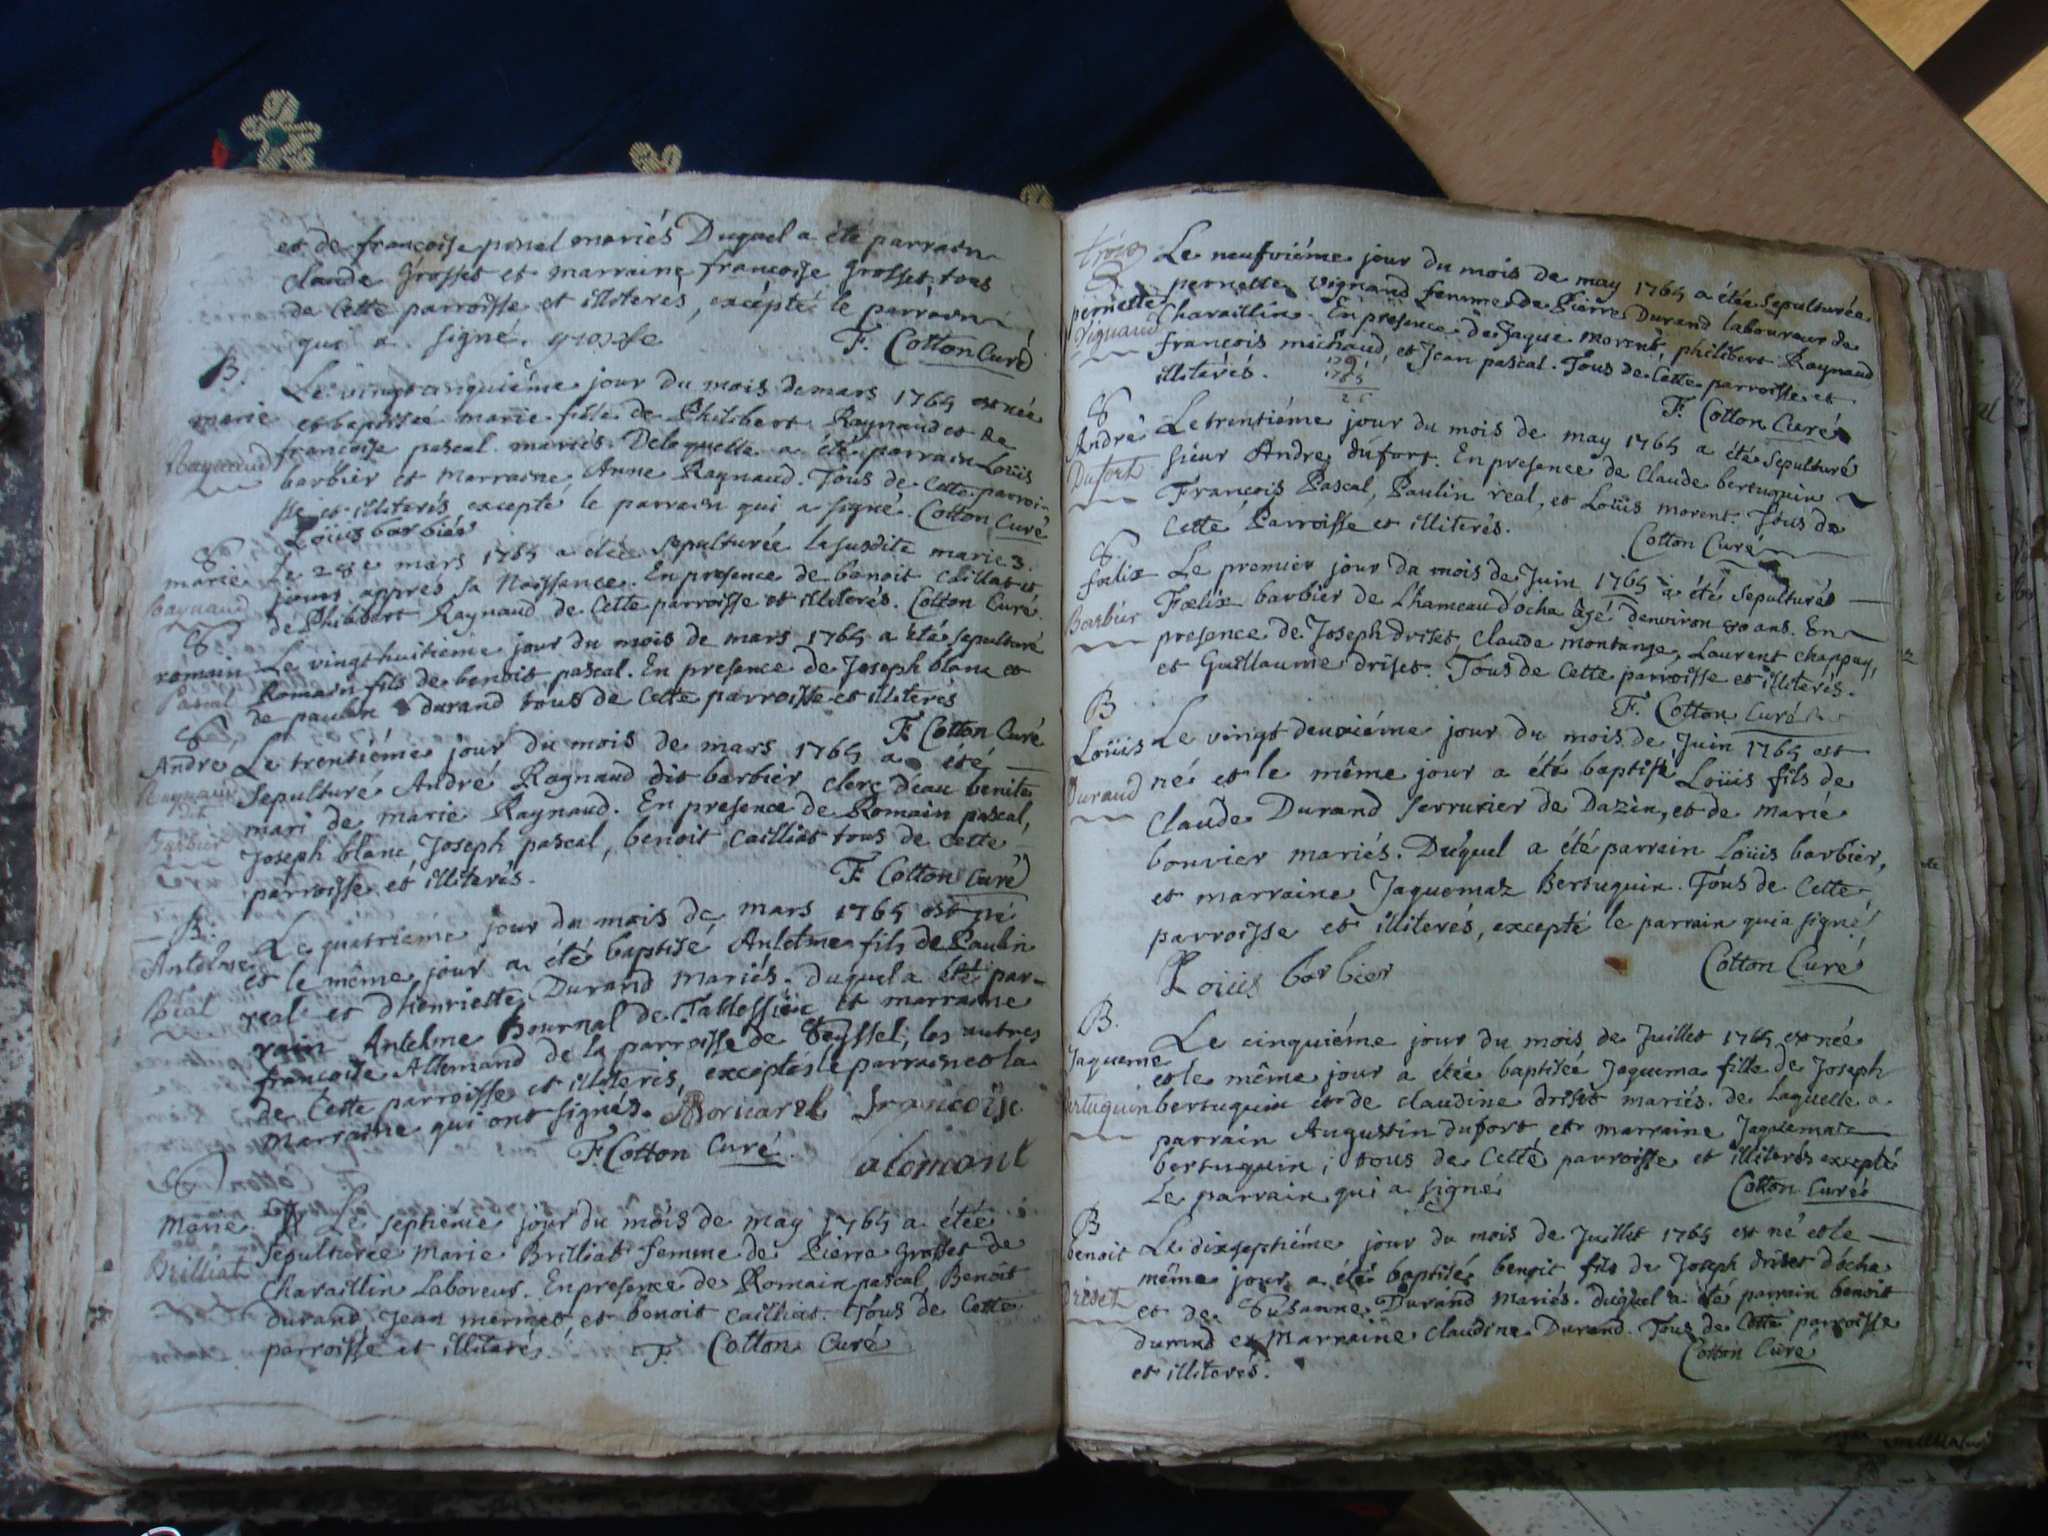 et de françoise pinel mariés Duquel a été parrain
claude Grosset et marraine françoise Grosset tous
de Cette parroisse et illiterés, excépté le parrain
qui a signé. grosse F. Cotton Curé
B.
marie
Raynaud
Le vingt cinquiéme jour du mois de mars 1765 est née
et baptisée marie fille de Philibert Raynaud et de
françoise pascal mariés. De laquelle a été parrain Loüis
barbier et Marraine Anne Raynaud. Tous de Cette parroi-
sse et illiterés excepté le parrain qui a signé. Cotton Curé
Loüis barbiér
S
marie
Raynaud
Le 28e mars 1765 a étée sepulturée la susdite marie 3.
jours apprés sa Naissance. En presence de benoit Cailliat et
de Philibert Raynaud de Cette parroisse et illiterés. Cotton Curé
S
romain
Pascal
Le vingt huitiéme jour du mois de mars 1765 a été sepulturé
Romain fils de benoit pascal. En presence de Joseph blanc et
de paulin durand tous de Cette parroisse et illiterés
F. Cotton Curé
S
André
Raynaud
dit
Barbier
Le trentiéme jour du mois de mars 1765 a été
Sepulturé André Raynaud dit barbier clerc d'eau benite
mari de marie Raynaud. En presence de Romain pascal,
Joseph blanc, Joseph pascal, benoit Cailliat tous de Cette
parroisse et illiterés. F. Cotton Curé
B.
Antelme
Réal
Le quatriéme jour du mois de mars 1765 est né
et le même jour a été baptisé Antelme fils de Paulin
real et d'henriette Durand mariés. duquel a été par-
rain Antelme Bournal de Tallossieu et marraine
françoise Allemand de la parroisse de Seyssel; les autres
de Cette parroisse et illiterés, exceptés le parrain et la
marraine qui ont signés. Bornarel françoise
F. Cotton Curé alemant
S
Marie
Brilliat
Le septiéme jour du mois de may 1765 a étée
Sepulturée Marie Brilliat femme de Pierre Grosset de
Charaillin Laboreur. En presence de Romain pascal, Benoit
durand, Jean mermet et benoit Cailliat. Tous de Cette
parroisse et illiterés. F. Cotton Curé
S
pernette
Vignaud
Le neufviéme jour du mois de may 1765 a étée Sepulturée
pernette Vignaud femme de Pierre Durand laboureur de
Charaillin. En presence de Jaque morent, philibert Raynaud
françois michaud, et Jean pascal. Tous de Cette parroisse et
illiterés. F. Cotton Curé
S
André
Dufort
Le trentiéme jour du mois de may 1765 a été Sepulturé
sieur André dufort. En presence de Claude bertuquin
François Pascal, Paulin real, et Loüis morent. Tous de
Cette Parroisse et illiterés. Cotton Curé
S.
fœlix
Barbier
Le premier jour du mois de Juin 1765 a été Sepulturé
Fœlix barbier de Lhameau d'ocha âgé denviron 80 ans. En
presence de Joseph driset, Claude montange, Laurent chappuy,
et Guillaume driset. Tous de Cette parroisse et illiterés.
F. Cotton Curé
B
Loüis
Durand
Le vingt deuxiéme jour du mois de Juin 1765 est
né et le même jour a été baptisé Loüis fils de
Claude Durand serrurier de Dazin, et de marie
bouvier mariés. Duquel a été parrain Loüis barbier,
et marraine Jaquemaz Bertuquin. Tous de Cette
parroisse et illiterés, excepté le parrain qui a signé
Loüis barbier Cotton Curé
B.
Jaqueme
ertuquin
Le cinquiéme jour du mois de Juillet 1765 est née
et le même jour a étée baptisée Jaquema fille de Joseph
bertuquin et de claudine driset mariés. de Laquelle a
parrain Augustin dufort et marraine Jaquemaz
bertuquin; tous de Cette parroisse et illiterés excepté
Le parrain qui a signé Cotton Curé
B
benoit
Driset
Le dixseptiéme jour du mois de Juillet 1765 est né et le
même jour a été baptisé benoit fils de Joseph driset d'ocha
et de Susanne Durand Mariés. duquel a été parrain benoit
durand et Marraine claudine Durand. Tous de Cette parroisse
et illiterés. Cotton Curé